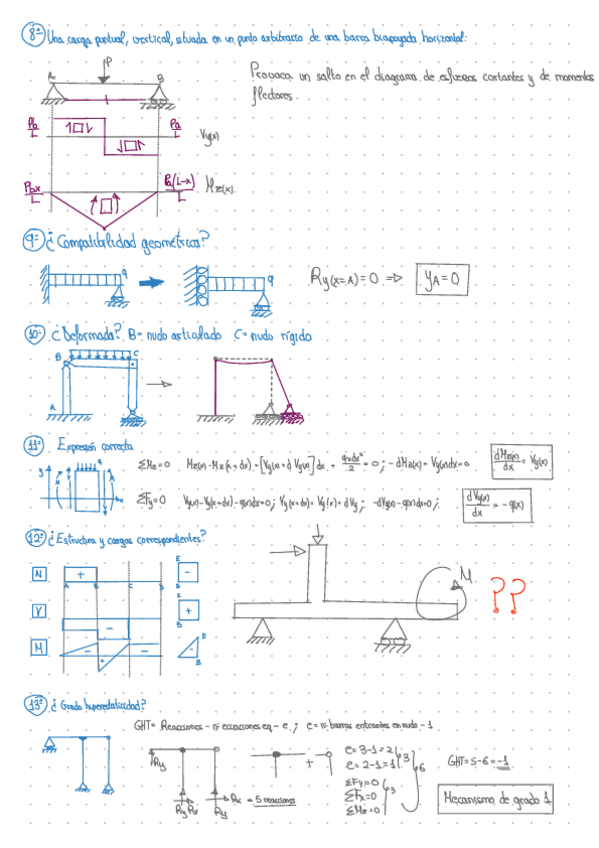 8º Una carga puntual, vertical, situada en un punto arbitrario de una barra biapoyada horizontal:
P
A B
Provoca un salto en el diagrama de esfuerzos cortantes y de momentos
flectores.
Pb/L Pa/L
Vy(x)
Pbx/L Pa(L-x)/L Mz(x)
9º ¿Compatibilidad geométrica?
q q
Ry(x=A)=0 => yA=0
10º ¿Deformada? B= nudo articulado C= nudo rígido
B C
A
11º Expresión correcta
ΣMz=0 Mz(x)-Mz(x+dx)+[Vy(x)+dVy(x)]dx + qxdx²/2 =0; -dMz(x)+Vy(x)dx=0 dMz(x)/dx = Vy(x)
ΣFy=0 Vy(x)-Vy(x+dx)-q(x)dx=0; Vy(x+dx)=Vy(x)+dVy; -dVy(x)-q(x)dx=0; dVy(x)/dx = -q(x)
12º ¿Estructura y cargas correspondientes?
N + E -
A B C D
V - E + B
M - + - E B
M ??
13º ¿Grado hiperestaticidad?
GHT= Reacciones - nº ecuaciones eq - e; e= nº barras entrantes en nudo - 1
Ry
Ry Rx Ry Rx = 5 reacciones
+
e=3-1=2
e=2-1=1
3
ΣFy=0
ΣFx=0
ΣMz=0
3
6
GHT=5-6=-1
Mecanismo de grado 1